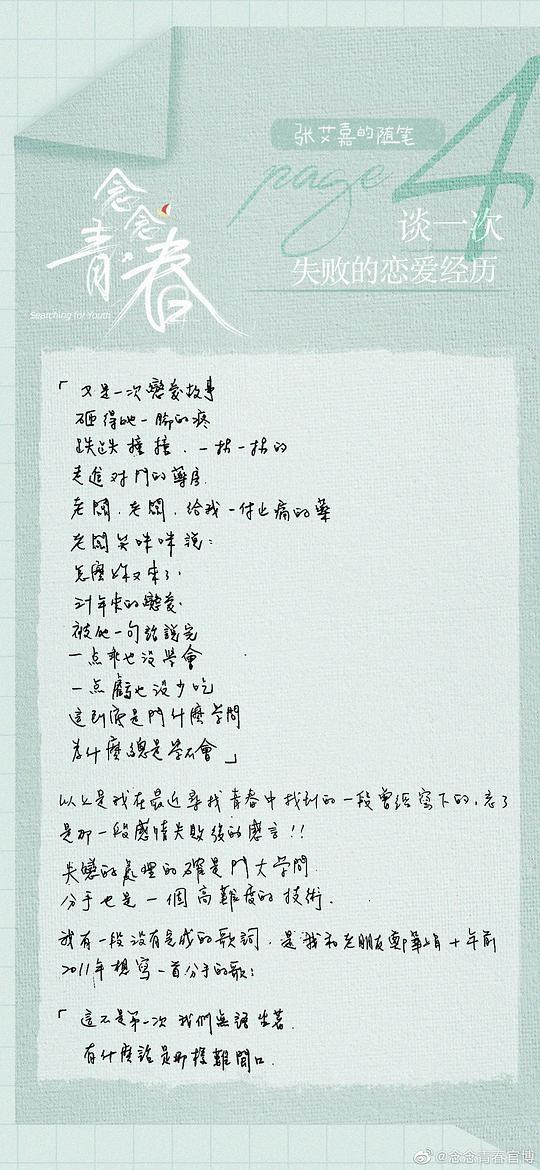 张艾嘉的随笔
page 4
谈一次
失败的恋爱经历
念念青春
Searching for Youth
「又是一次戀愛故事
砸得她一腳的疼
跌跌撞撞．一拐一拐的
走進對門的藥房
老闆．老闆．給我一付止痛的藥
老闆笑咪咪說：
怎麼妳又來了．
對年來的戀愛
被他一句話說完
一点乖也没學會
一点虧也没少吃
這到底是門什麼學問
為什麼總是學不會」
以上是我在最近尋找青春中找到的一段曾經寫下的．忘了
是那一段感情失敗後的感言！！
失戀的處理的確是門大學問
分手也是一個高難度的技術．
我有一段沒有完成的歌詞．是我和老朋友鄭華娟十年前
2011年想寫一首分手的歌：
「這不是第一次 我們無語坐著
有什麼話是那樣難開口
@念念青春官博